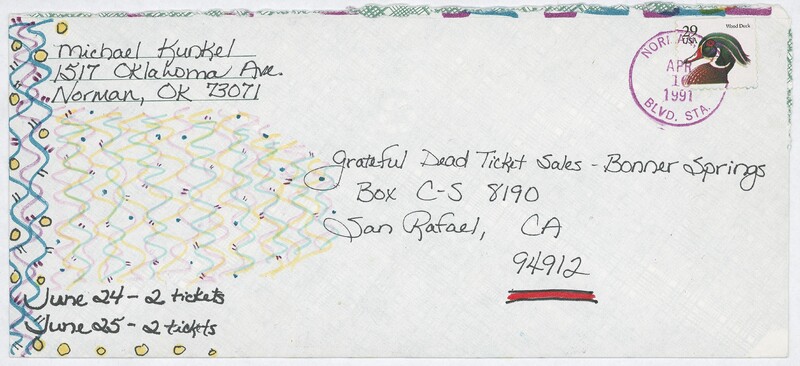 Michael Kunkel
1517 Oklahoma Ave.
Norman, OK 73071
29
USA
Wood Duck
APR
1991
BLVD. STA.
Grateful Dead Ticket Sales - Bonner Springs
Box C-S 8190
San Rafael, CA
94912
June 24 - 2 tickets
June 25 - 2 tickets